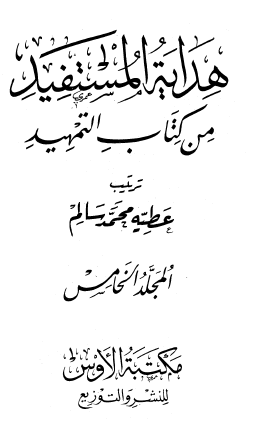 هداية المستفيد
من كتاب التمهيد
ترتيب
عطية محمد سالم
المجلد الخامس
مكتبة الأوس
للنشر والتوزيع